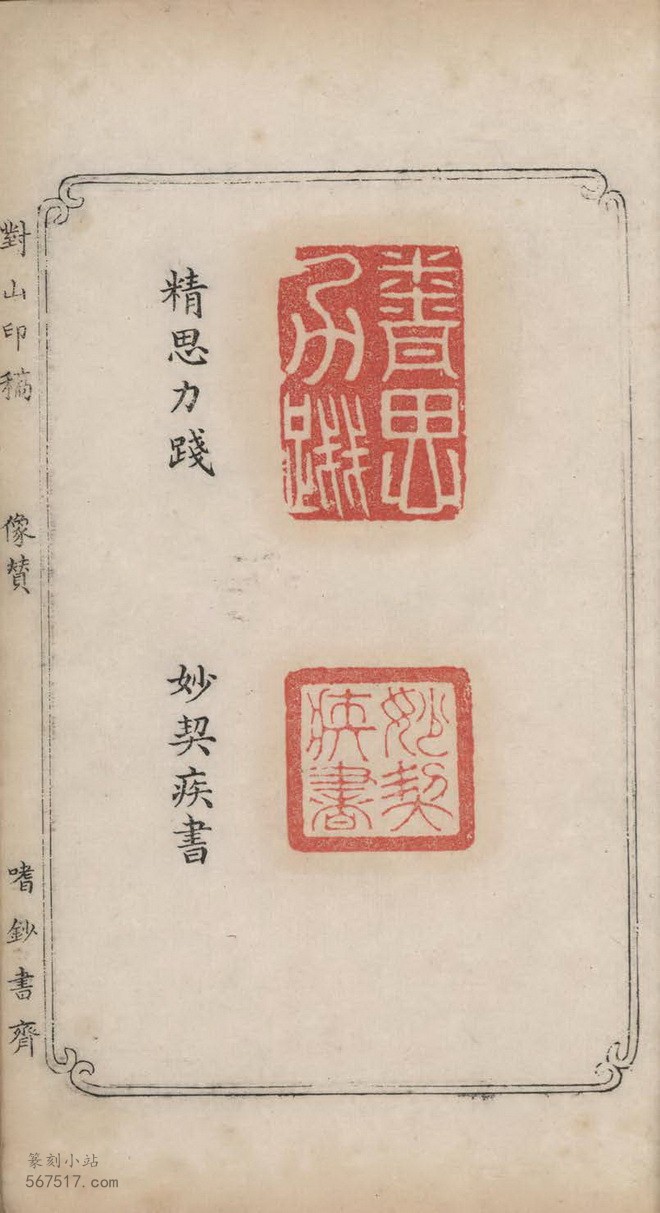 精思力踐
妙契疾書
精思力踐
妙契疾書
對山印稿
像賛
嗜鈔書齊
篆刻小站
567517.com